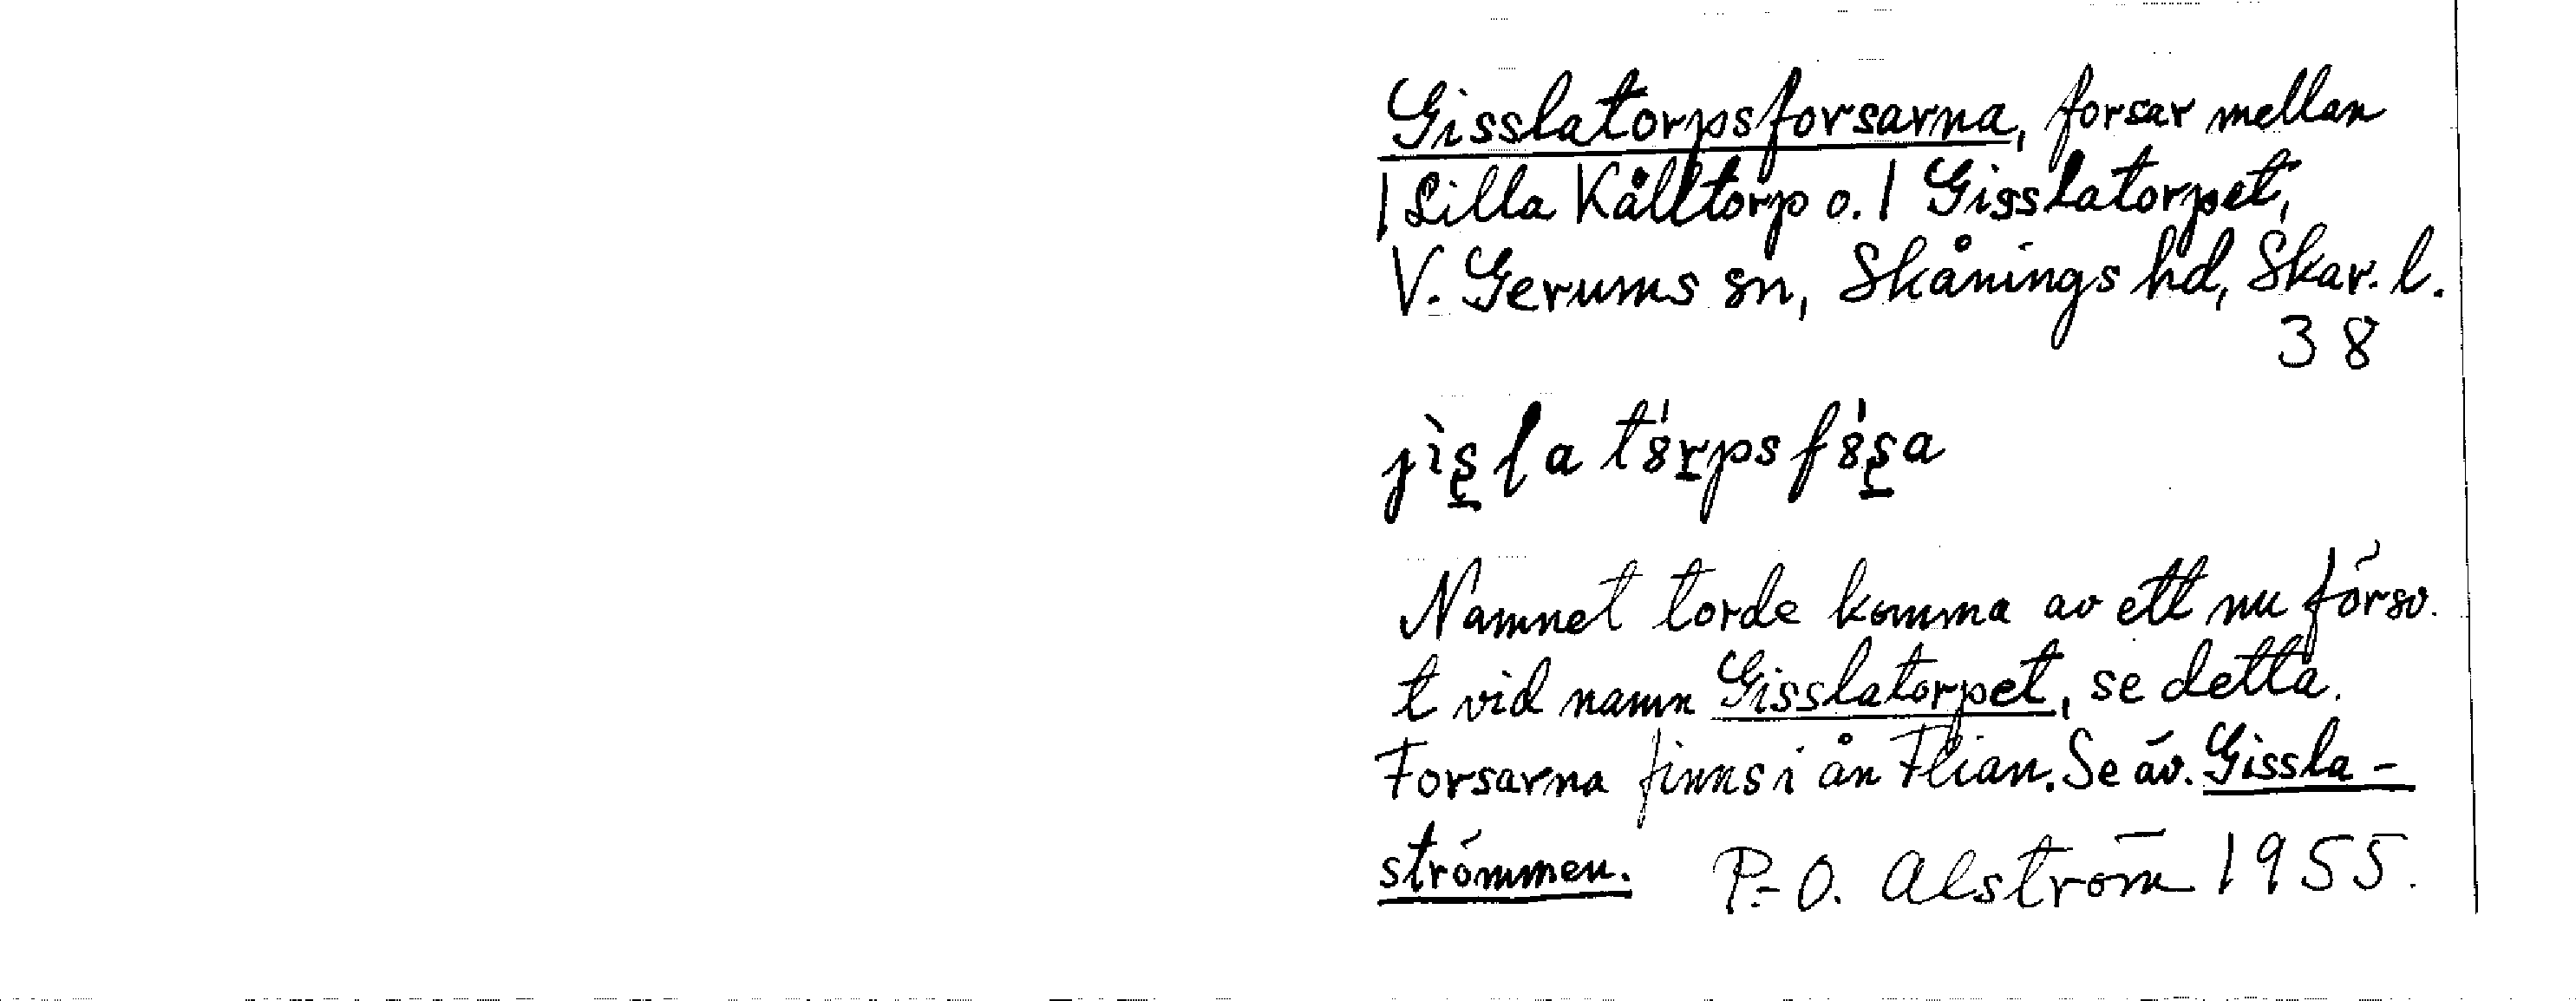 Gisslatorpsforsarna, forsar mellan
| Lilla Kålltorp o. | Gisslatorpet,
V. Gerums sn, Skånings hd, Skar. l.
38
Namnet torde komma av ett nu försv.
t vid namn Gisslatorpet, se detta.
Forsarna finns i ån Flian. Se äv. Gissla-
strömmen. P.-O. Alström 1955.